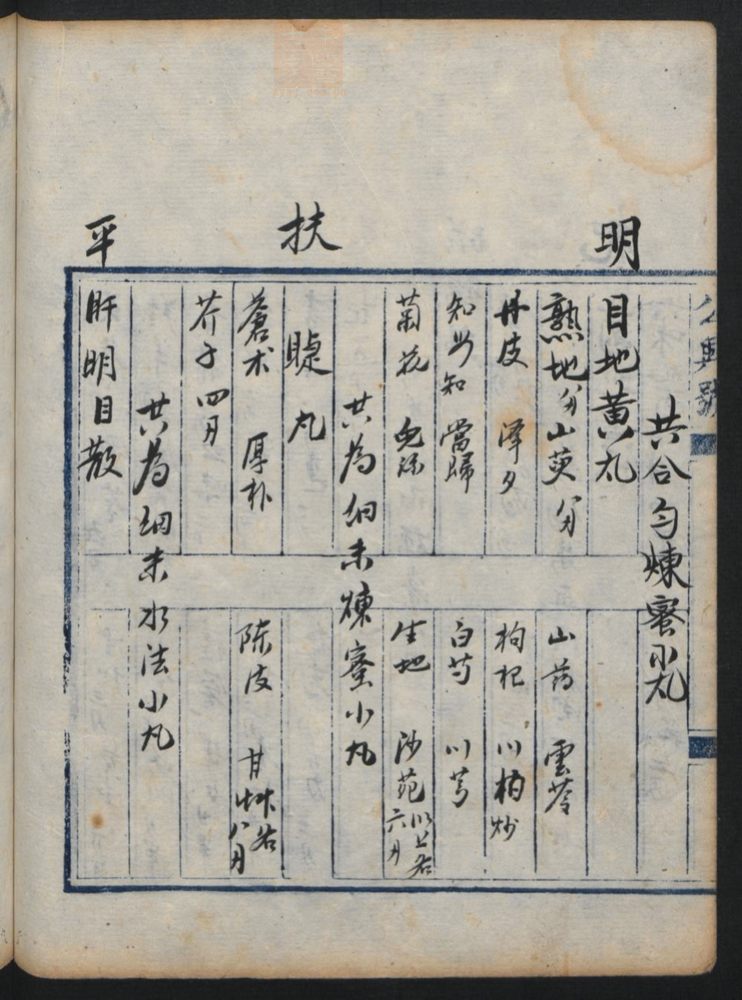 公興號
共合勻煉蜜小丸
明目地黃丸
熟地 山萸 山药 雲苓
丹皮 澤夕 枸杞 川柏炒
知母 當歸 白芍 川芎
菊花 兔絲 生地 沙苑 以上各六月
共為細末煉蜜小丸
扶睫丸
蒼术 厚朴 陈皮 甘草各八月
芥子四月
共為细末水法小丸
平肝明目散